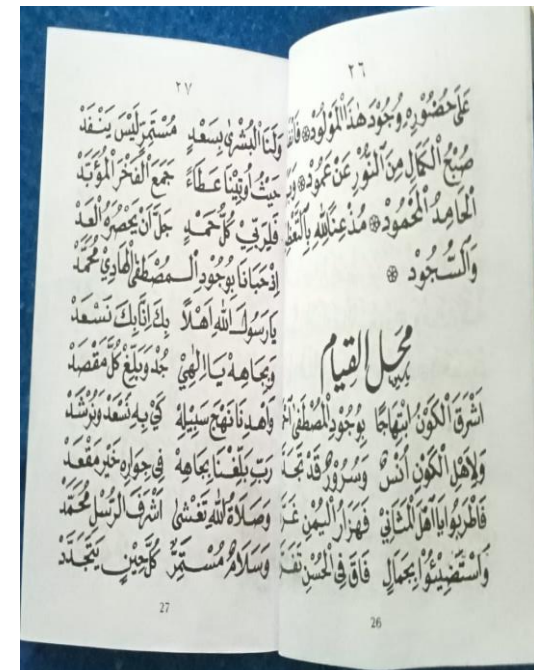 ٢٦
عَلَى حُضُوْرِهِ وُجُوْدَ هٰذَا الْمَوْلُوْدْ ۞
صُبْحُ الْكَمَالِ مِنَ النُّوْرِ عَنْ عَمُوْدْ ۞
الْحَامِدُ الْمَحْمُوْدْ ۞ مُذْعِنًا لِلّٰهِ
وَالسُّجُوْدِ ۞
مَحَلُّ الْقِيَامِ
اَشْرَقَ الْكَوْنُ ابْتِهَاجًا بِوُجُوْدِ الْمُصْطَفٰى
وَلِاَهْلِ الْكَوْنِ اُنْسٌ وَسُرُوْرٌ قَدْ
فَاطْرَبُوْا يَا اَهْلَ الْمَثَانِيْ فَهَزَارُ الْيُمْنِ
وَاسْتَضِيْئُوْا بِجَمَالٍ فَاقَ فِى الْحُسْنِ
26
٢٧
وَلَنَا الْبُشْرٰى بِسَعْدٍ مُسْتَمِرٍّ لَيْسَ يَنْفَدْ
حَيْثُ اُوْتِيْنَا عَطَاءً جَمَعَ الْفَخْرَ الْمُؤَبَّدْ
فَلِرَبِّيْ كُلُّ حَمْدٍ جَلَّ اَنْ يَحْصُرَهُ الْعَدْ
اِذْ حَبَانَا بِوُجُوْدِ الْمُصْطَفَى الْهَادِيْ مُحَمَّدْ
يَا رَسُوْلَ اللهِ اَهْلاً بِكَ اِنَّا بِكَ نَسْعَدْ
وَبِجَاهِهْ يَا اِلٰهِيْ جُدْ وَبَلِّغْ كُلَّ مَقْصَدْ
وَاهْدِنَا نَهْجَ سَبِيْلِهْ كَيْ بِهِ نَسْعَدْ وَنُرْشَدْ
رَبِّ بَلِّغْنَا بِجَاهِهْ فِيْ جِوَارِهِ خَيْرَ مَقْعَدْ
وَصَلَاةُ اللهِ تَغْشٰى اَشْرَفَ الرُّسْلِ مُحَمَّدْ
وَسَلَامٌ مُسْتَمِرٌّ كُلَّ حِيْنٍ يَتَجَدَّدْ
27